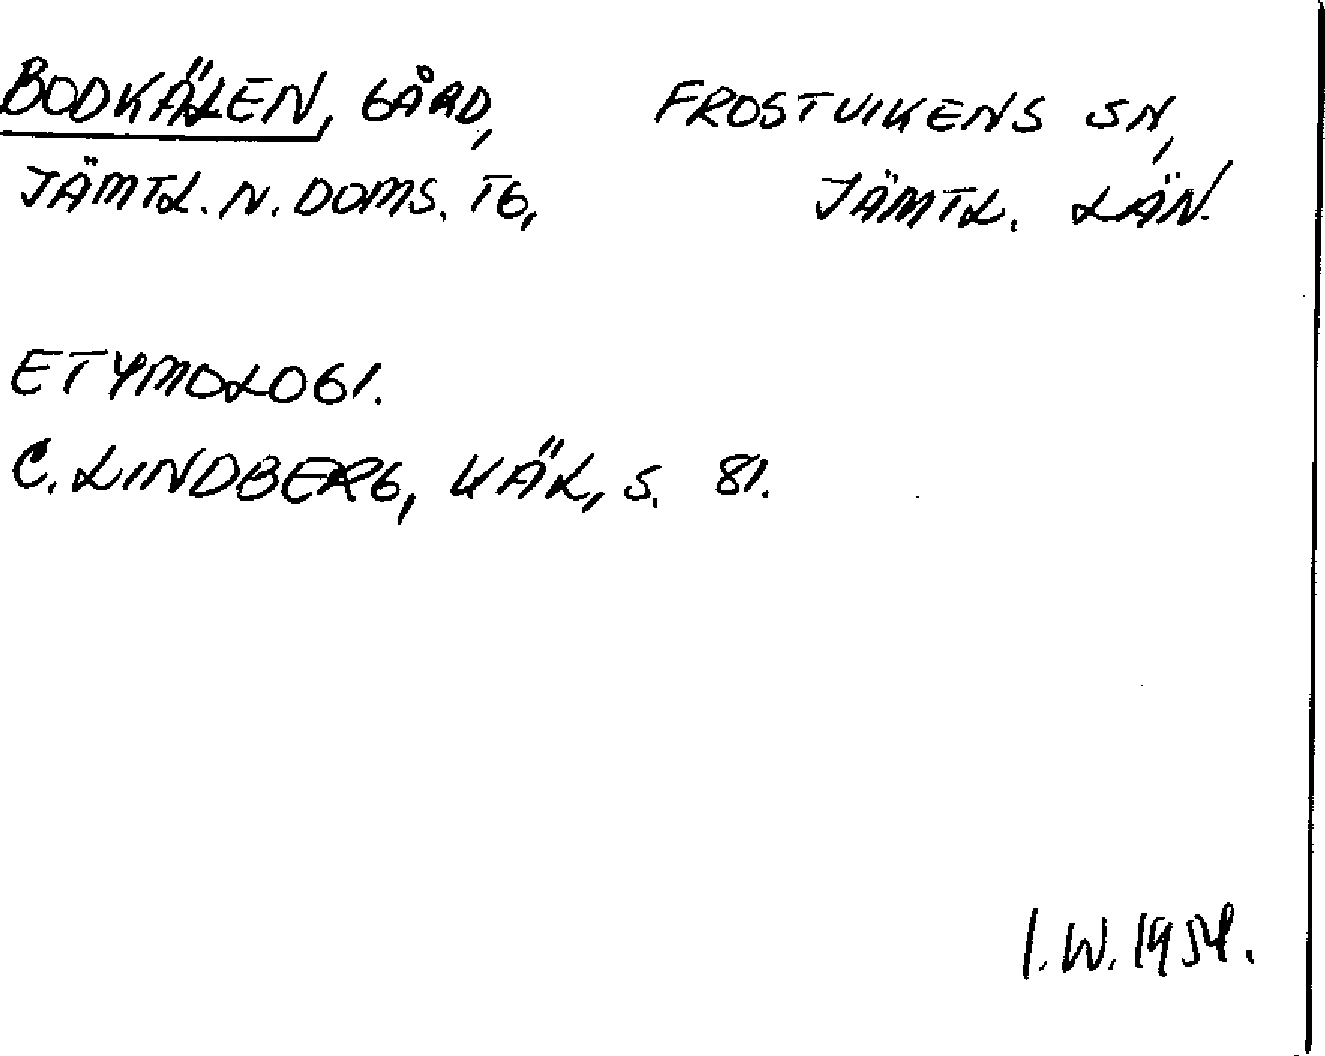 BODKÄLEN, GÅRD, FROSTVIKENS SN,
JÄMTL. N. DOMS. TG, JÄMTL. LÄN.
ETYMOLOGI.
C. LINDBERG, KÄL, S. 81.
I. W. 1954.